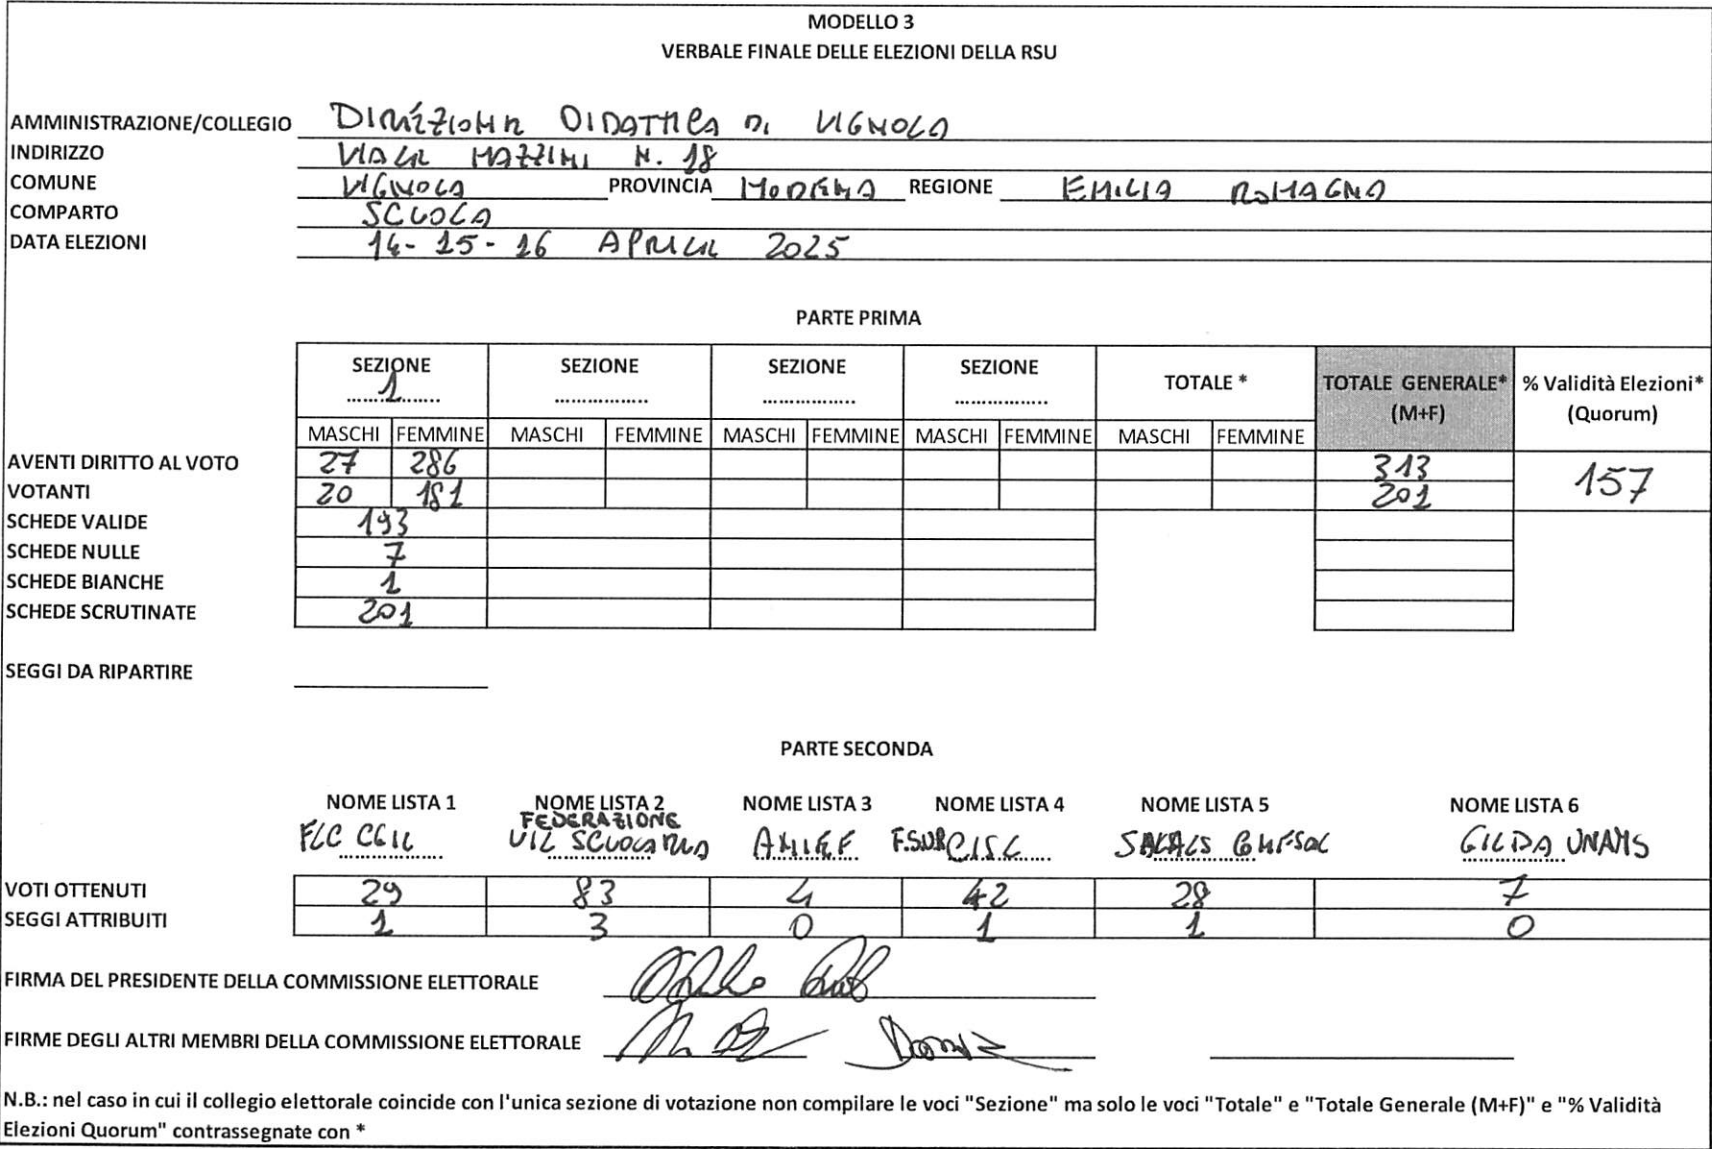 MODELLO 3
VERBALE FINALE DELLE ELEZIONI DELLA RSU
AMMINISTRAZIONE/COLLEGIO DIREZIONE DIDATTICA DI VIGNOLA
INDIRIZZO VIALE MAZZINI N. 18
COMUNE VIGNOLA PROVINCIA MODENA REGIONE EMILIA ROMAGNA
COMPARTO SCUOLA
DATA ELEZIONI 14-15-16 APRILE 2025
PARTE PRIMA
SEZIONE 1 SEZIONE ................ SEZIONE ................ SEZIONE ................ TOTALE * TOTALE GENERALE* (M+F) % Validità Elezioni* (Quorum)
MASCHI FEMMINE MASCHI FEMMINE MASCHI FEMMINE MASCHI FEMMINE MASCHI FEMMINE
AVENTI DIRITTO AL VOTO 27 286 313 157
VOTANTI 20 181 201
SCHEDE VALIDE 193
SCHEDE NULLE 7
SCHEDE BIANCHE 1
SCHEDE SCRUTINATE 201
SEGGI DA RIPARTIRE
PARTE SECONDA
NOME LISTA 1 NOME LISTA 2 NOME LISTA 3 NOME LISTA 4 NOME LISTA 5 NOME LISTA 6
FLC CGIL FEDERAZIONE UIL SCUOLA RUA ANIEF F.SUR CISL SNALS CONFSAL GILDA UNAMS
VOTI OTTENUTI 29 83 4 42 28 7
SEGGI ATTRIBUITI 1 3 0 1 1 0
FIRMA DEL PRESIDENTE DELLA COMMISSIONE ELETTORALE
FIRME DEGLI ALTRI MEMBRI DELLA COMMISSIONE ELETTORALE
N.B.: nel caso in cui il collegio elettorale coincide con l'unica sezione di votazione non compilare le voci "Sezione" ma solo le voci "Totale" e "Totale Generale (M+F)" e "% Validità
Elezioni Quorum" contrassegnate con *